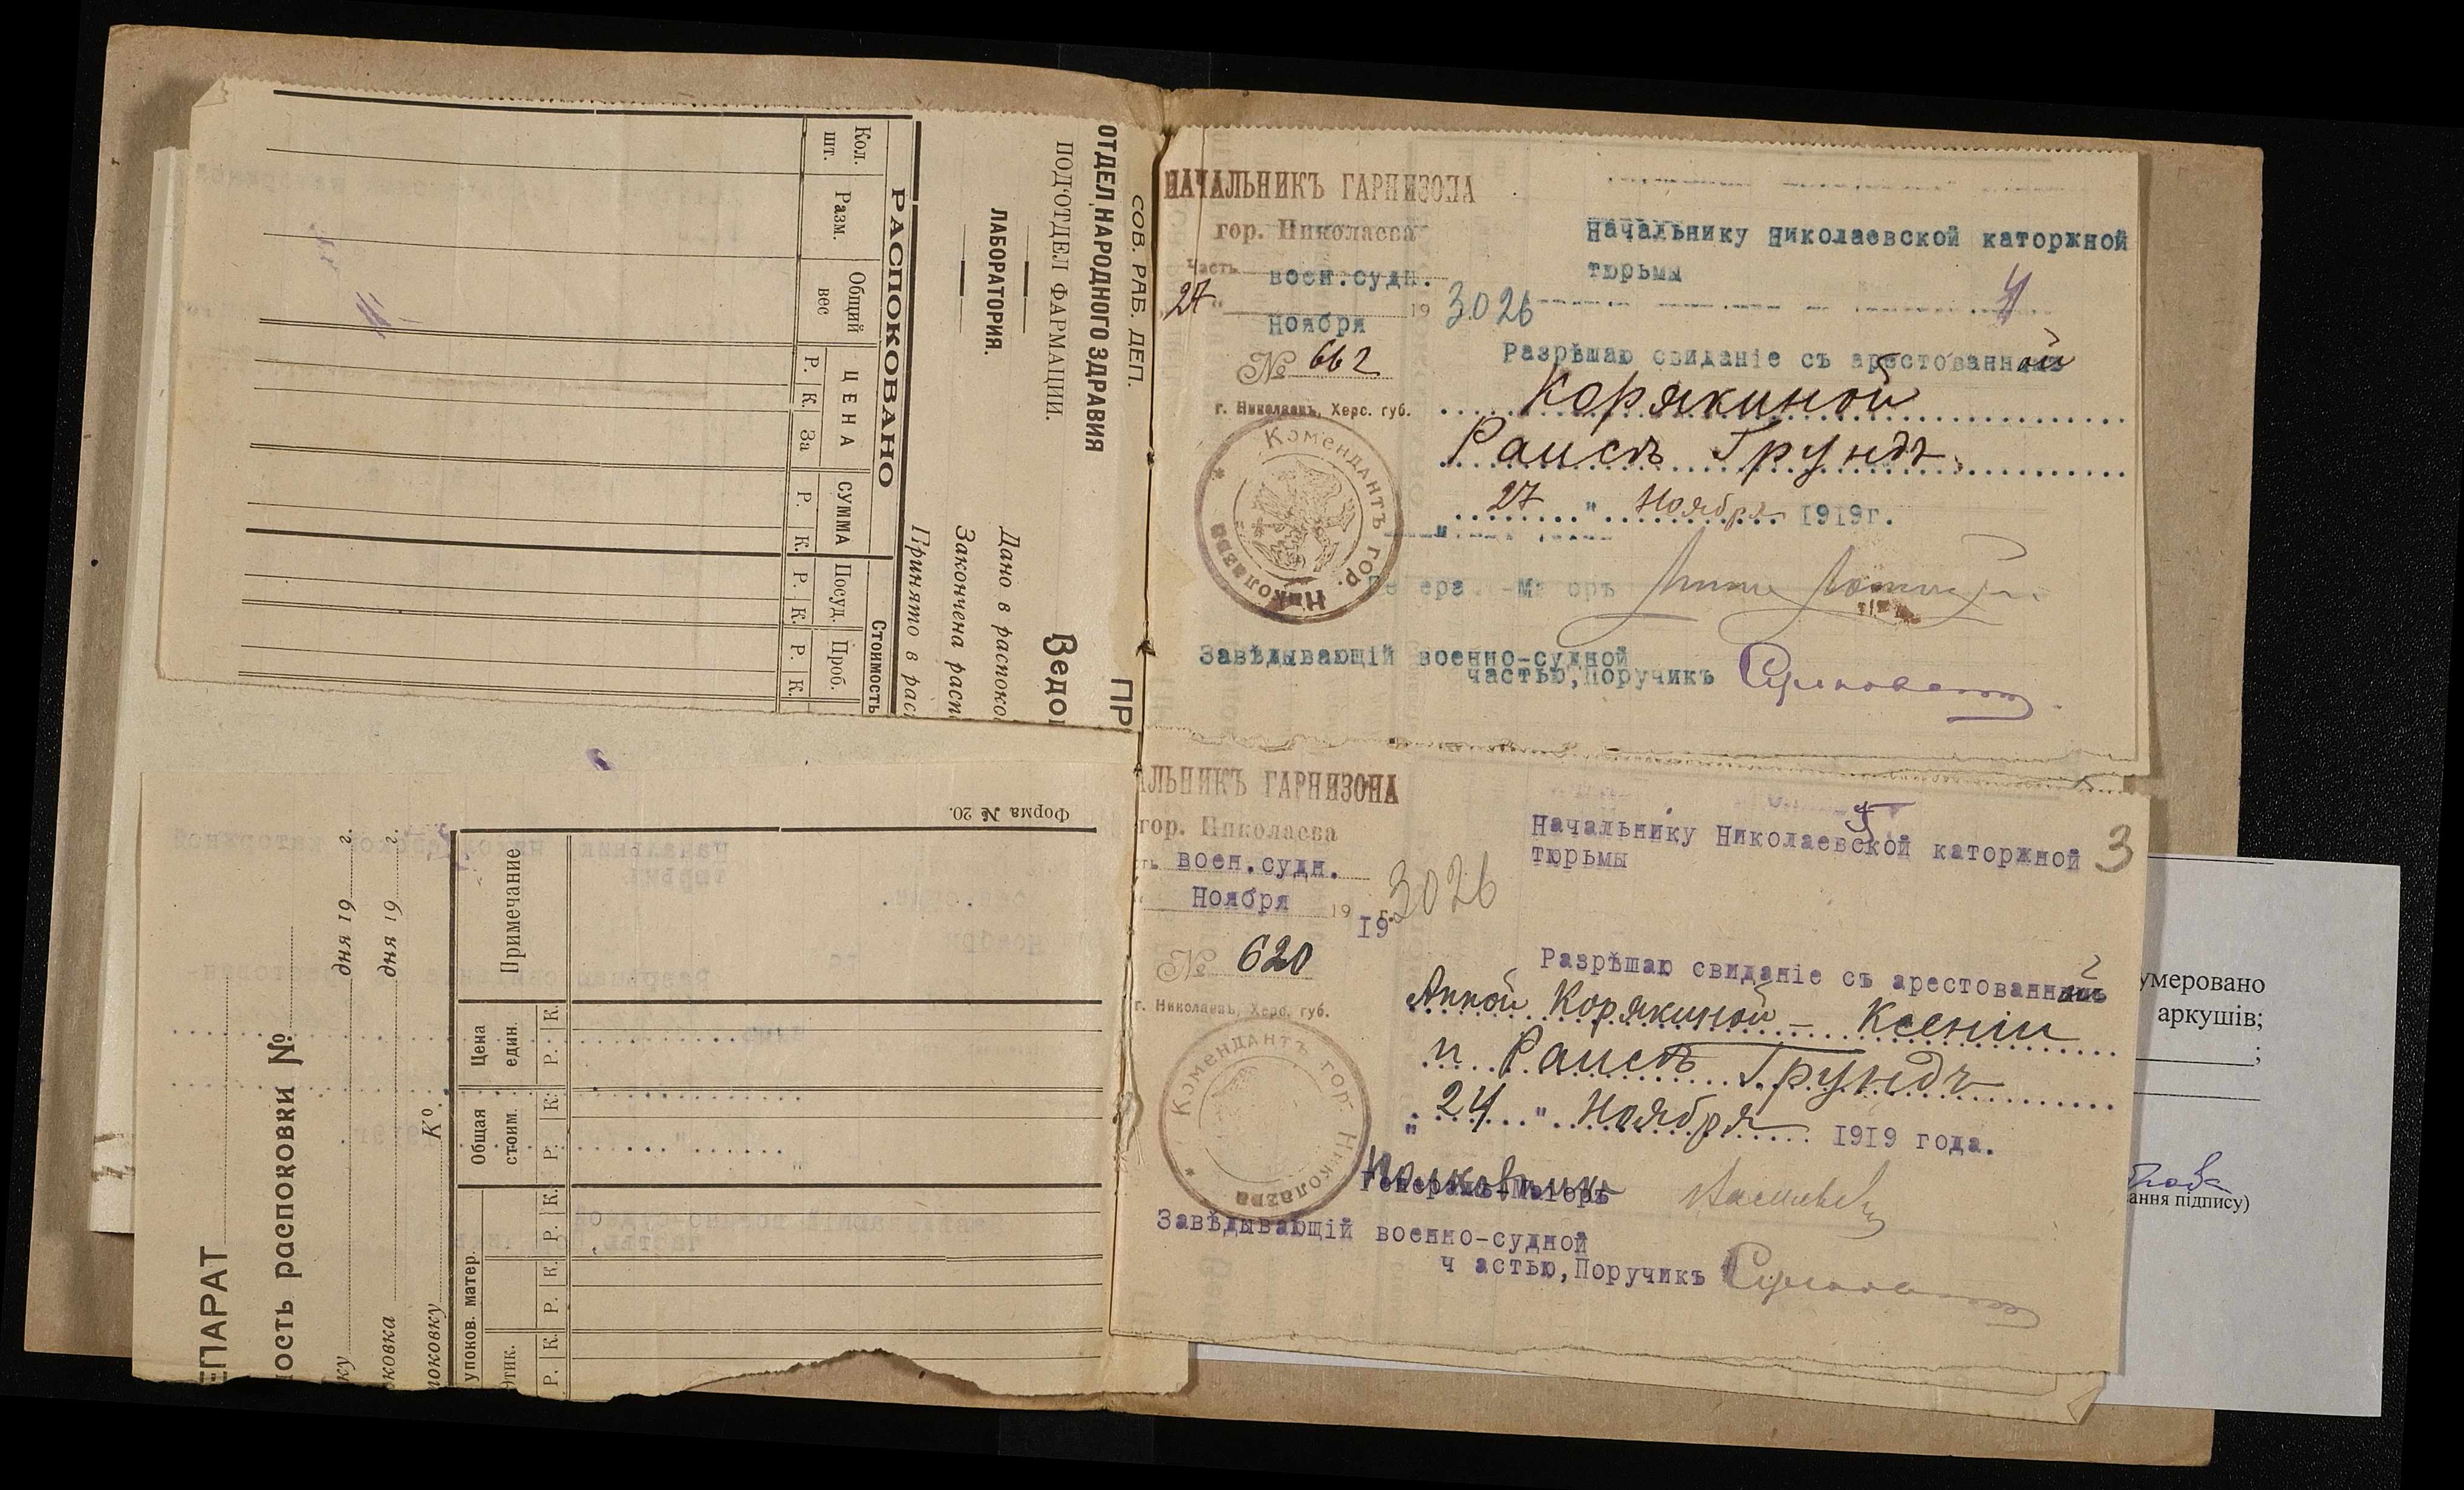 СОВ. РАБ. ДЕП.
ОТДЕЛ НАРОДНОГО ЗДРАВИЯ
ПОДОТДЕЛ ФАРМАЦИИ.
ЛАБОРАТОРИЯ.
ПР
Ведо
Дано в распоко
Закончена расп
Принято в рас
РАСПОКОВАНО
Стоимость
Кол. шт.
Разм.
Общий вес
ЦЕНА
СУММА
Посуд.
Проб.
Р. К. За Р. К. Р. К. Р. К.
Форма № 20.
ЕПАРАТ
ность распоковки №
ку дня 19 г.
оковка дня 19 г.
поковку К°.
упоков. матер.
Этик.
Общая стоим.
Цена един.
Примечание
Р. К. Р. К. Р. К. Р. К. Р. К.
НАЧАЛЬНИКЪ ГАРНИЗОНА
гор. Николаева
Часть воен.судн.
27 " Ноября 19
3026
№ 662
г. Николаевъ, Херс. губ.
Комендантъ гор. Николаева
Начальнику Николаевской каторжной
тюрьмы
4
Разрѣшаю свиданіе съ арестованной
Корякиной
Раисѣ Грундъ
" 27 " Ноября 1919г.
Генерал-Маіоръ
Завѣдывающій военно-судной
частью,Поручикъ
АЛЬНИКЪ ГАРНИЗОНА
гор. Николаева
ть воен.судн.
" Ноября 19 19 г.
3026
№ 620
г. Николаевъ, Херс. губ.
Комендантъ гор. Николаева
5
Начальнику Николаевской каторжной
тюрьмы
3
Разрѣшаю свиданіе съ арестованной
Анной Корякиной – Ксеніи
и Раисѣ Грундъ
" 24 " Ноября 1919 года.
Полковникъ
Генералъ-Маіоръ
Завѣдывающій военно-судной
ч астью,Поручикъ
умеровано
аркушів;
;
ання підпису)